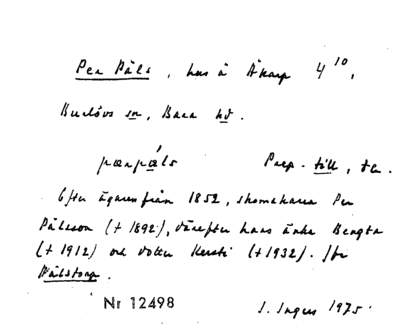 Per Påls, hus å Åkarp 4¹⁰,
Burlövs sn, Bara hd.
pærpåls Prep. till, te.
Efter ägaren från 1852, skomakaren Per
Pålsson († 1892), därefter hans änka Bengta
(† 1912) och dotter Kersti († 1932). Jfr
Pålstorp.
Nr 12498 I. Ingers 1975.